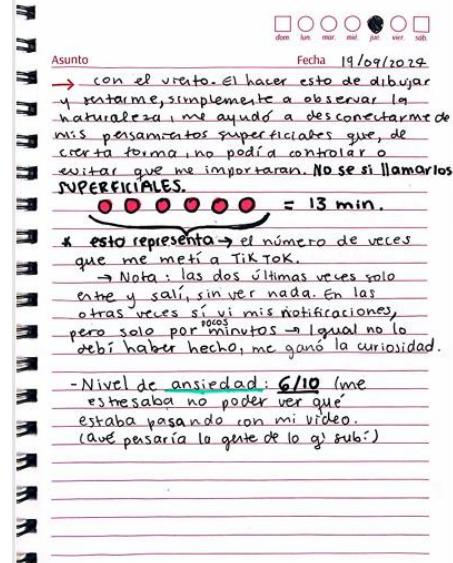 dom. lun. mar. mié. jue. vier. sáb.
Asunto Fecha 19/09/2024
→ con el viento. El hacer esto de dibujar
y sentarme, simplemente a observar la
naturaleza, me ayudó a desconectarme de
mis pensamientos superficiales que, de
cierta forma, no podía controlar o
evitar que me importaran. No se si llamarlos
SUPERFICIALES.
= 13 min.
* esto representa → el número de veces
que me metí a TikTok.
→ Nota: las dos últimas veces solo
entre y salí, sin ver nada. En las
otras veces sí vi mis notificaciones,
pero solo por pocos minutos → Igual no lo
debí haber hecho, me ganó la curiosidad.
- Nivel de ansiedad: 6/10 (me
estresaba no poder ver qué
estaba pasando con mi video.
(Qué pensaría la gente de lo q' subí)